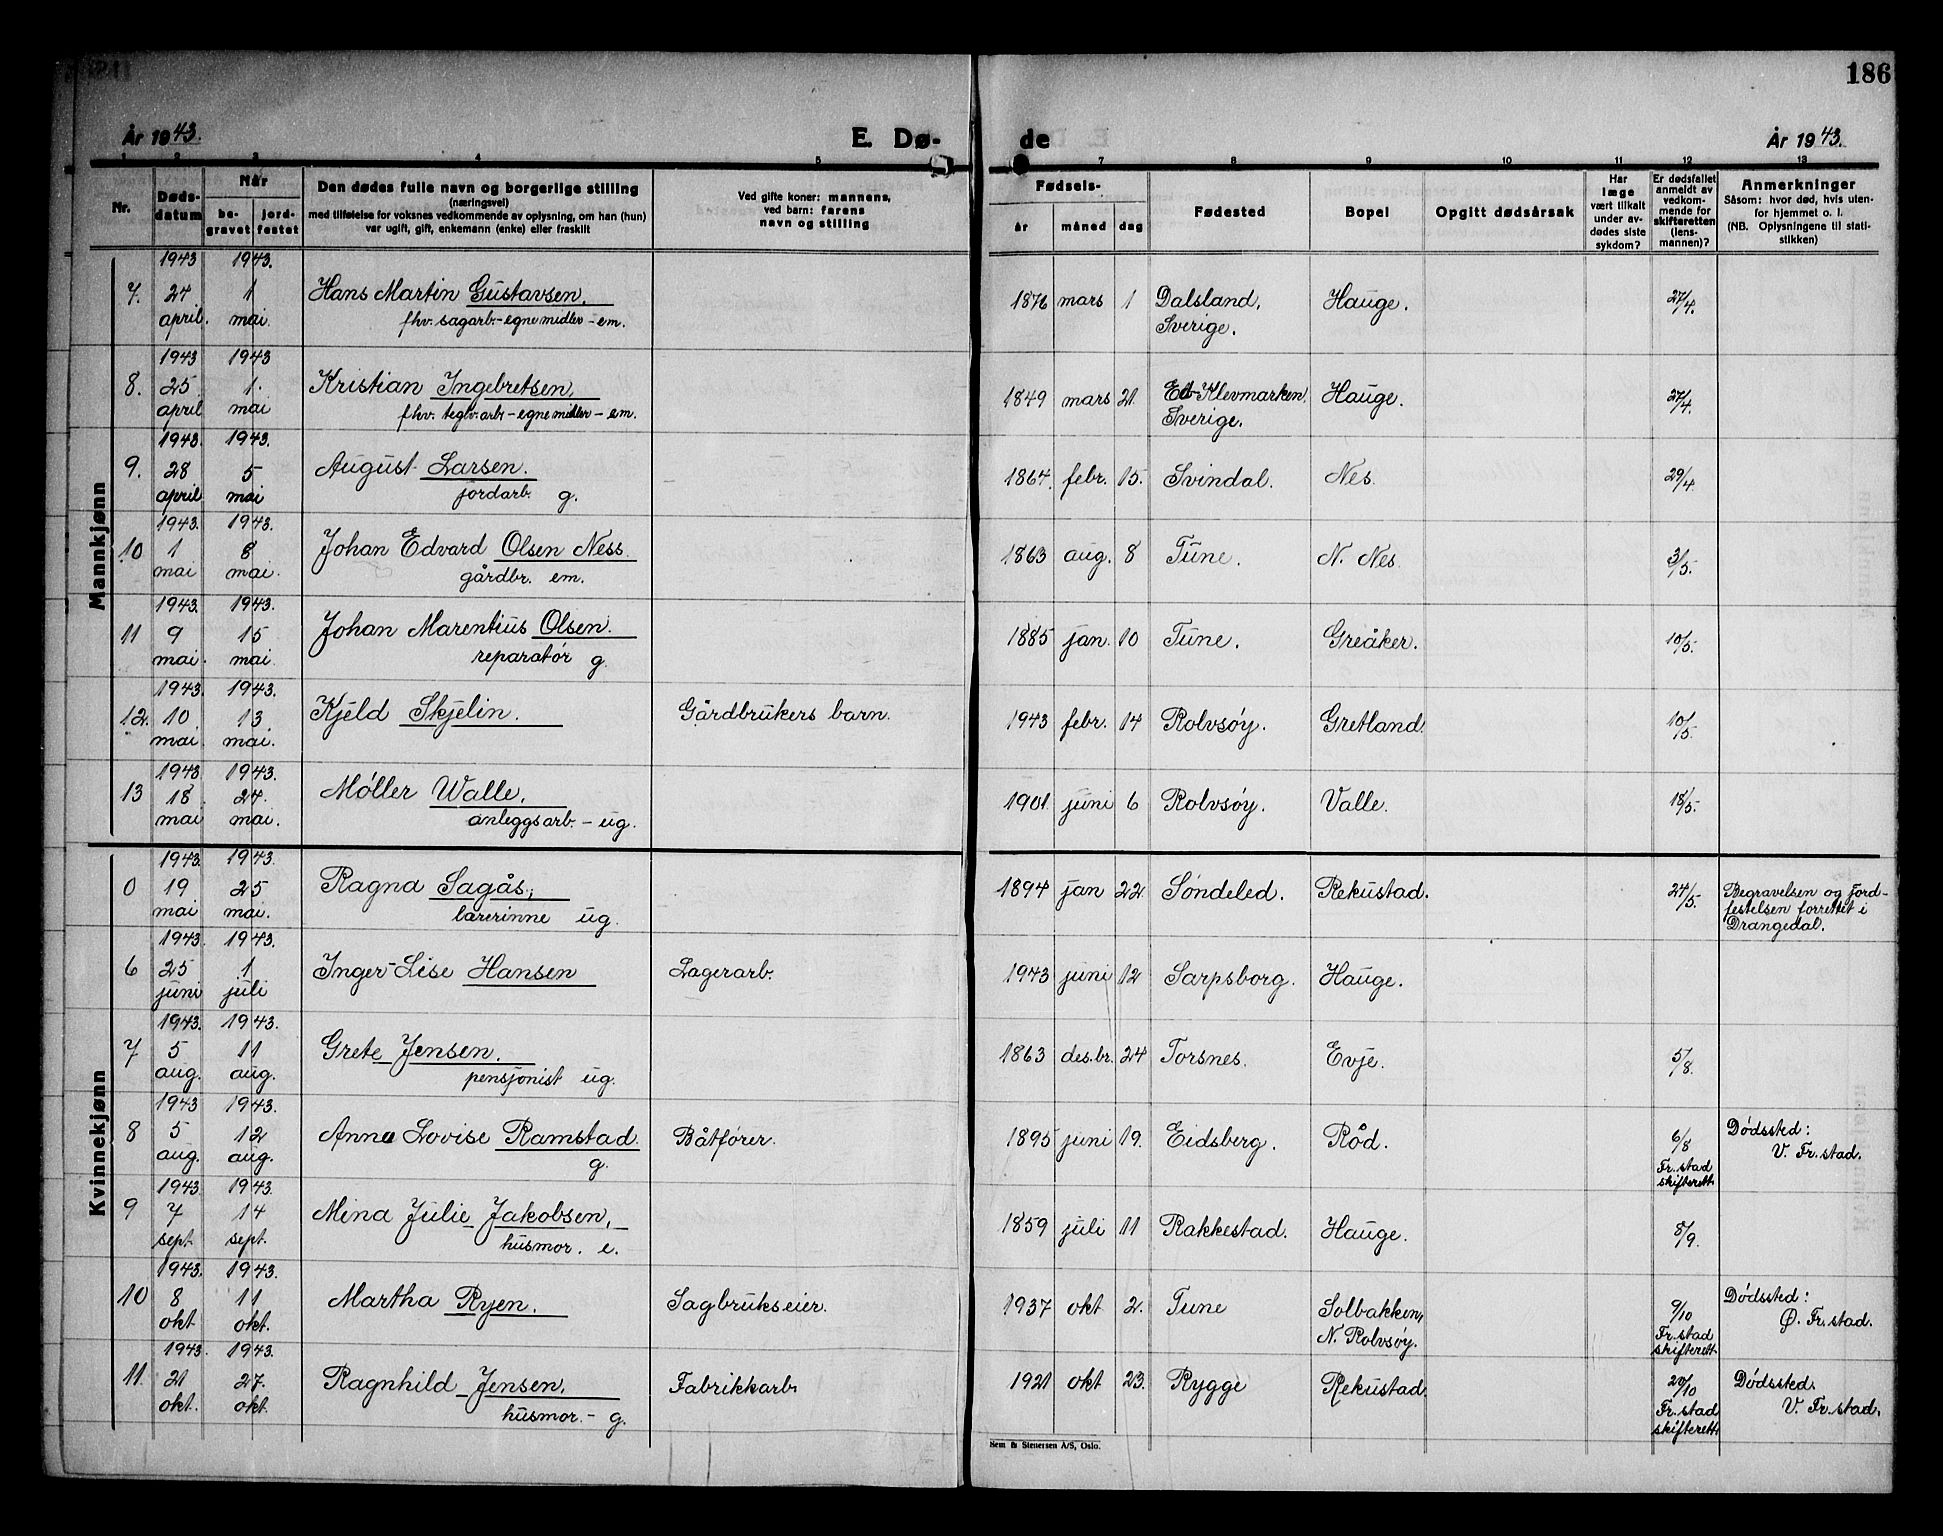 186
År 1943.
E. Dø-
de
År 1943.
1 2 3 4 5
7 8 9 10 11 12 13
Nr.
Døds-
datum
Når
be-
gravet
jord-
festet
Den dødes fulle navn og borgerlige stilling
(næringsvei)
med tilføielse for voksnes vedkommende av oplysning, om han (hun)
var ugift, gift, enkemann (enke) eller fraskilt
Ved gifte koner: mannens,
ved barn: farens
navn og stilling
Fødsels-
år måned dag
Fødested
Bopel
Opgitt dødsårsak
Har
læge
vært tilkalt
under av-
dødes siste
sykdom?
Er dødsfallet
anmeldt av
vedkom-
mende for
skifteretten
(lens-
mannen)?
Anmerkninger
Såsom: hvor død, hvis uten-
for hjemmet o. l.
(NB. Oplysningene til stati-
stikken)
Mannkjønn
1943 1943.
7. 24 1 Hans Martin Gustavsen, 1876 mars 1 Dalsland, Hauge. 27/4.
april. mai. fhv. sagarb. - egne midler - em. Sverige.
1943 1943
8. 25 1. Kristian Ingebretsen, 1849 mars 21. Ed-Klevmarken, Hauge. 27/4.
april mai fhv. teglv.arb - egne midler - em. Sverige.
1943 1943.
9. 28 5 August Larsen. 1864. febr. 15. Svindal. Nes. 29/4.
april mai jordarb. g.
1943. 1943.
10 1 8 Johan Edvard Olsen Ness. 1863 aug. 8 Tune. N. Nes. 3/5.
mai mai. gårdbr. em.
1943. 1943.
11 9 15 Johan Marentius Olsen. 1885 jan. 10 Tune. Greåker. 10/5.
mai. mai. reparatør g.
1943. 1943.
12. 10 13 Kjeld Skjelin. Gårdbrukers barn. 1943 febr. 14 Rolvsøy. Gretland. 10/5.
mai. mai.
1943 1943.
13 18 24. Møller Walle. 1901 juni 6 Rolvsøy. Valle. 18/5.
mai mai. anleggsarb. - ug.
Kvinnekjønn
1943. 1943.
0 19 25 Ragna Sagås; 1894 jan 22. Søndeled. Rekustad. 24/5. Begravelsen og jord-
mai mai. lærerinne ug. festelsen forrettet i
Drangedal.
1943. 1943.
6 25 1 Inger-Lise Hansen Lagerarb. 1943 juni 12 Sarpsborg. Hauge.
juni juli
1943. 1943.
7 5 11 Grete Jensen. 1863 des.br. 24 Torsnes. Evje. 5/8.
aug. aug. pensjonist ug.
1943 1943.
8 5 12 Anna Lovise Ramstad. Båtfører. 1895 juni 19. Eidsberg. Röd. 6/8 Dødssted:
aug. aug. g. Fr.stad V. Fr.stad.
skifterett.
1943. 1943.
9 7 14 Mina Julie Jakobsen, 1859 juli 11 Rakkestad. Hauge. 8/9.
sept. sept. husmor. e.
1943. 1943.
10 8 11 Martha Ryen. Sagbrukseier. 1937 okt 2. Tune Solbakken, 9/10 Dødssted:
okt okt. N. Rolvsøy. Fr.stad Ø. Fr.stad.
skifterett.
1943. 1943.
11. 21 27. Ragnhild Jensen, Fabrikkarb. 1921 okt 23. Rygge Rekustad. Dødssted.
okt. okt husmor. - g. Fr.stad V. Fr.stad.
skifterett.
Sem & Stenersen A/S, Oslo.